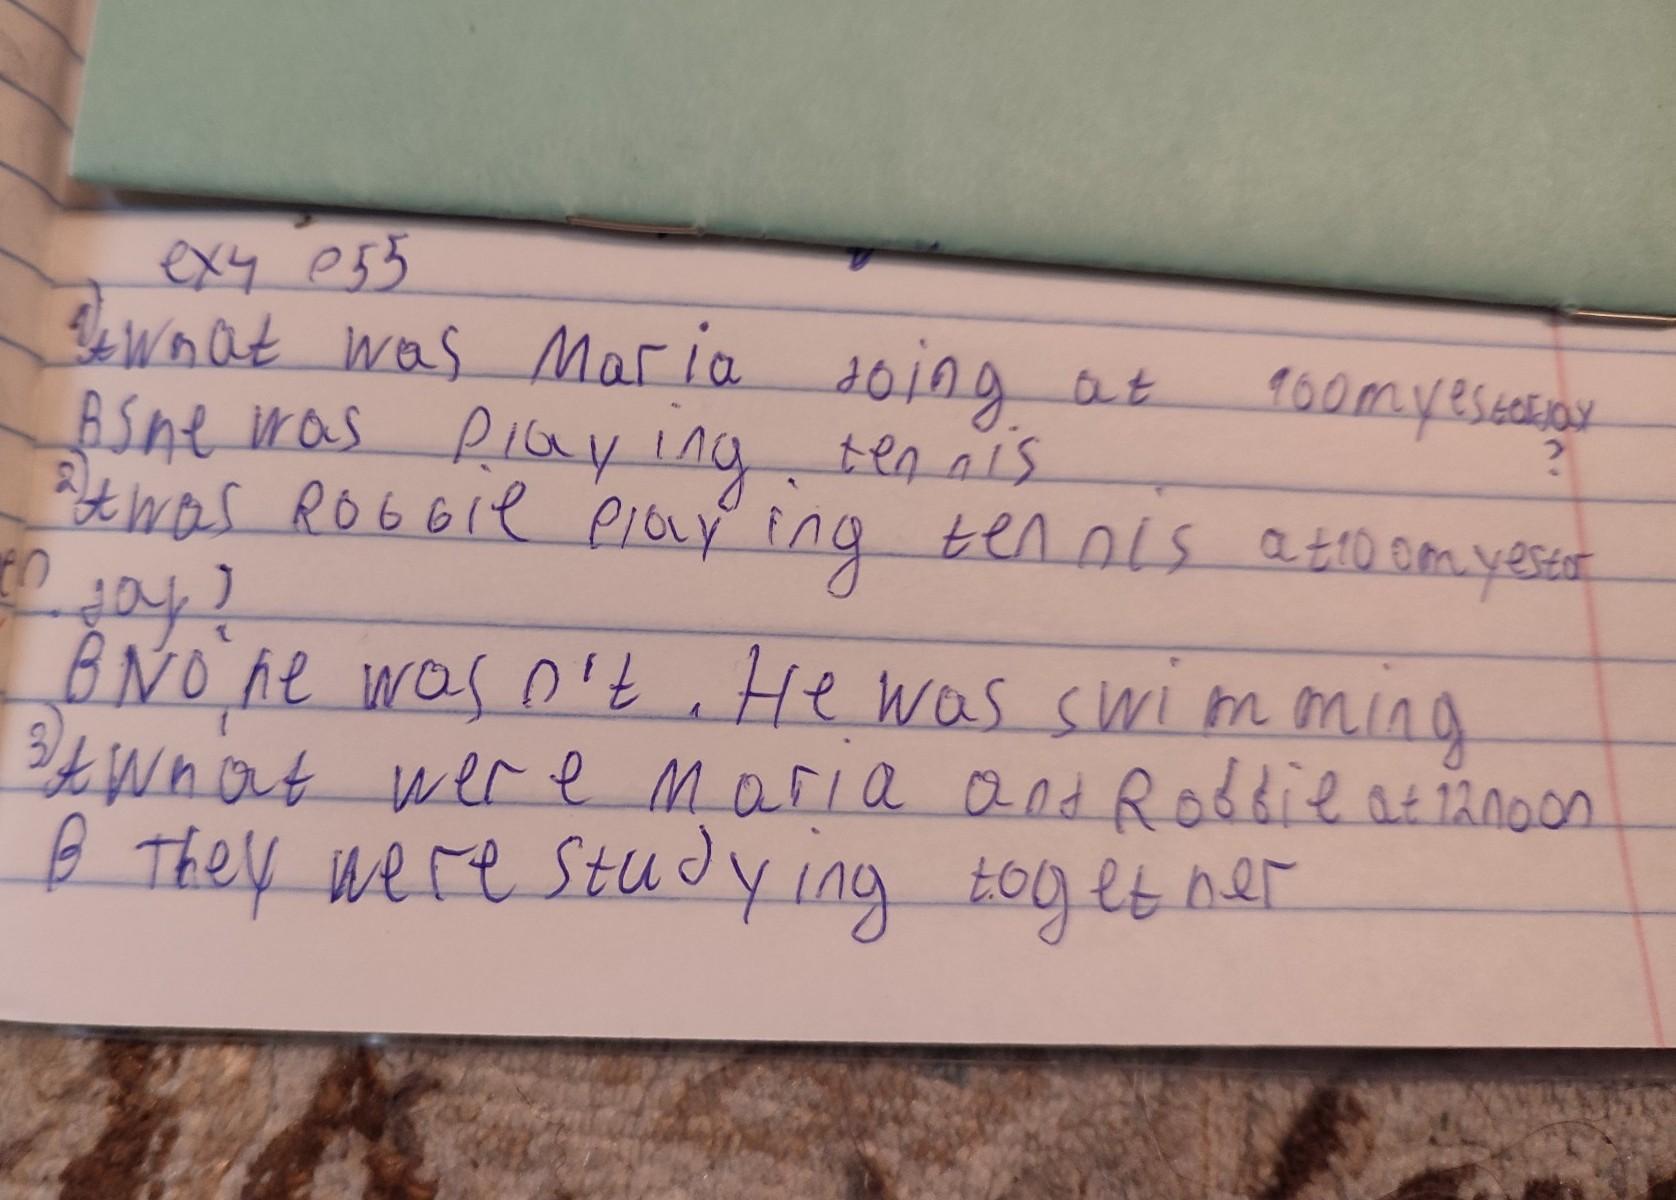 ex4 p55
1) A What was Maria doing at 100m yesterday
B She was playing tennis ?
2) A was Robbie playing tennis at 100m yester
en
day?
B No, he wasn't. He was swimming
3) A What were Maria and Robbie at 12 noon
B They were studying together